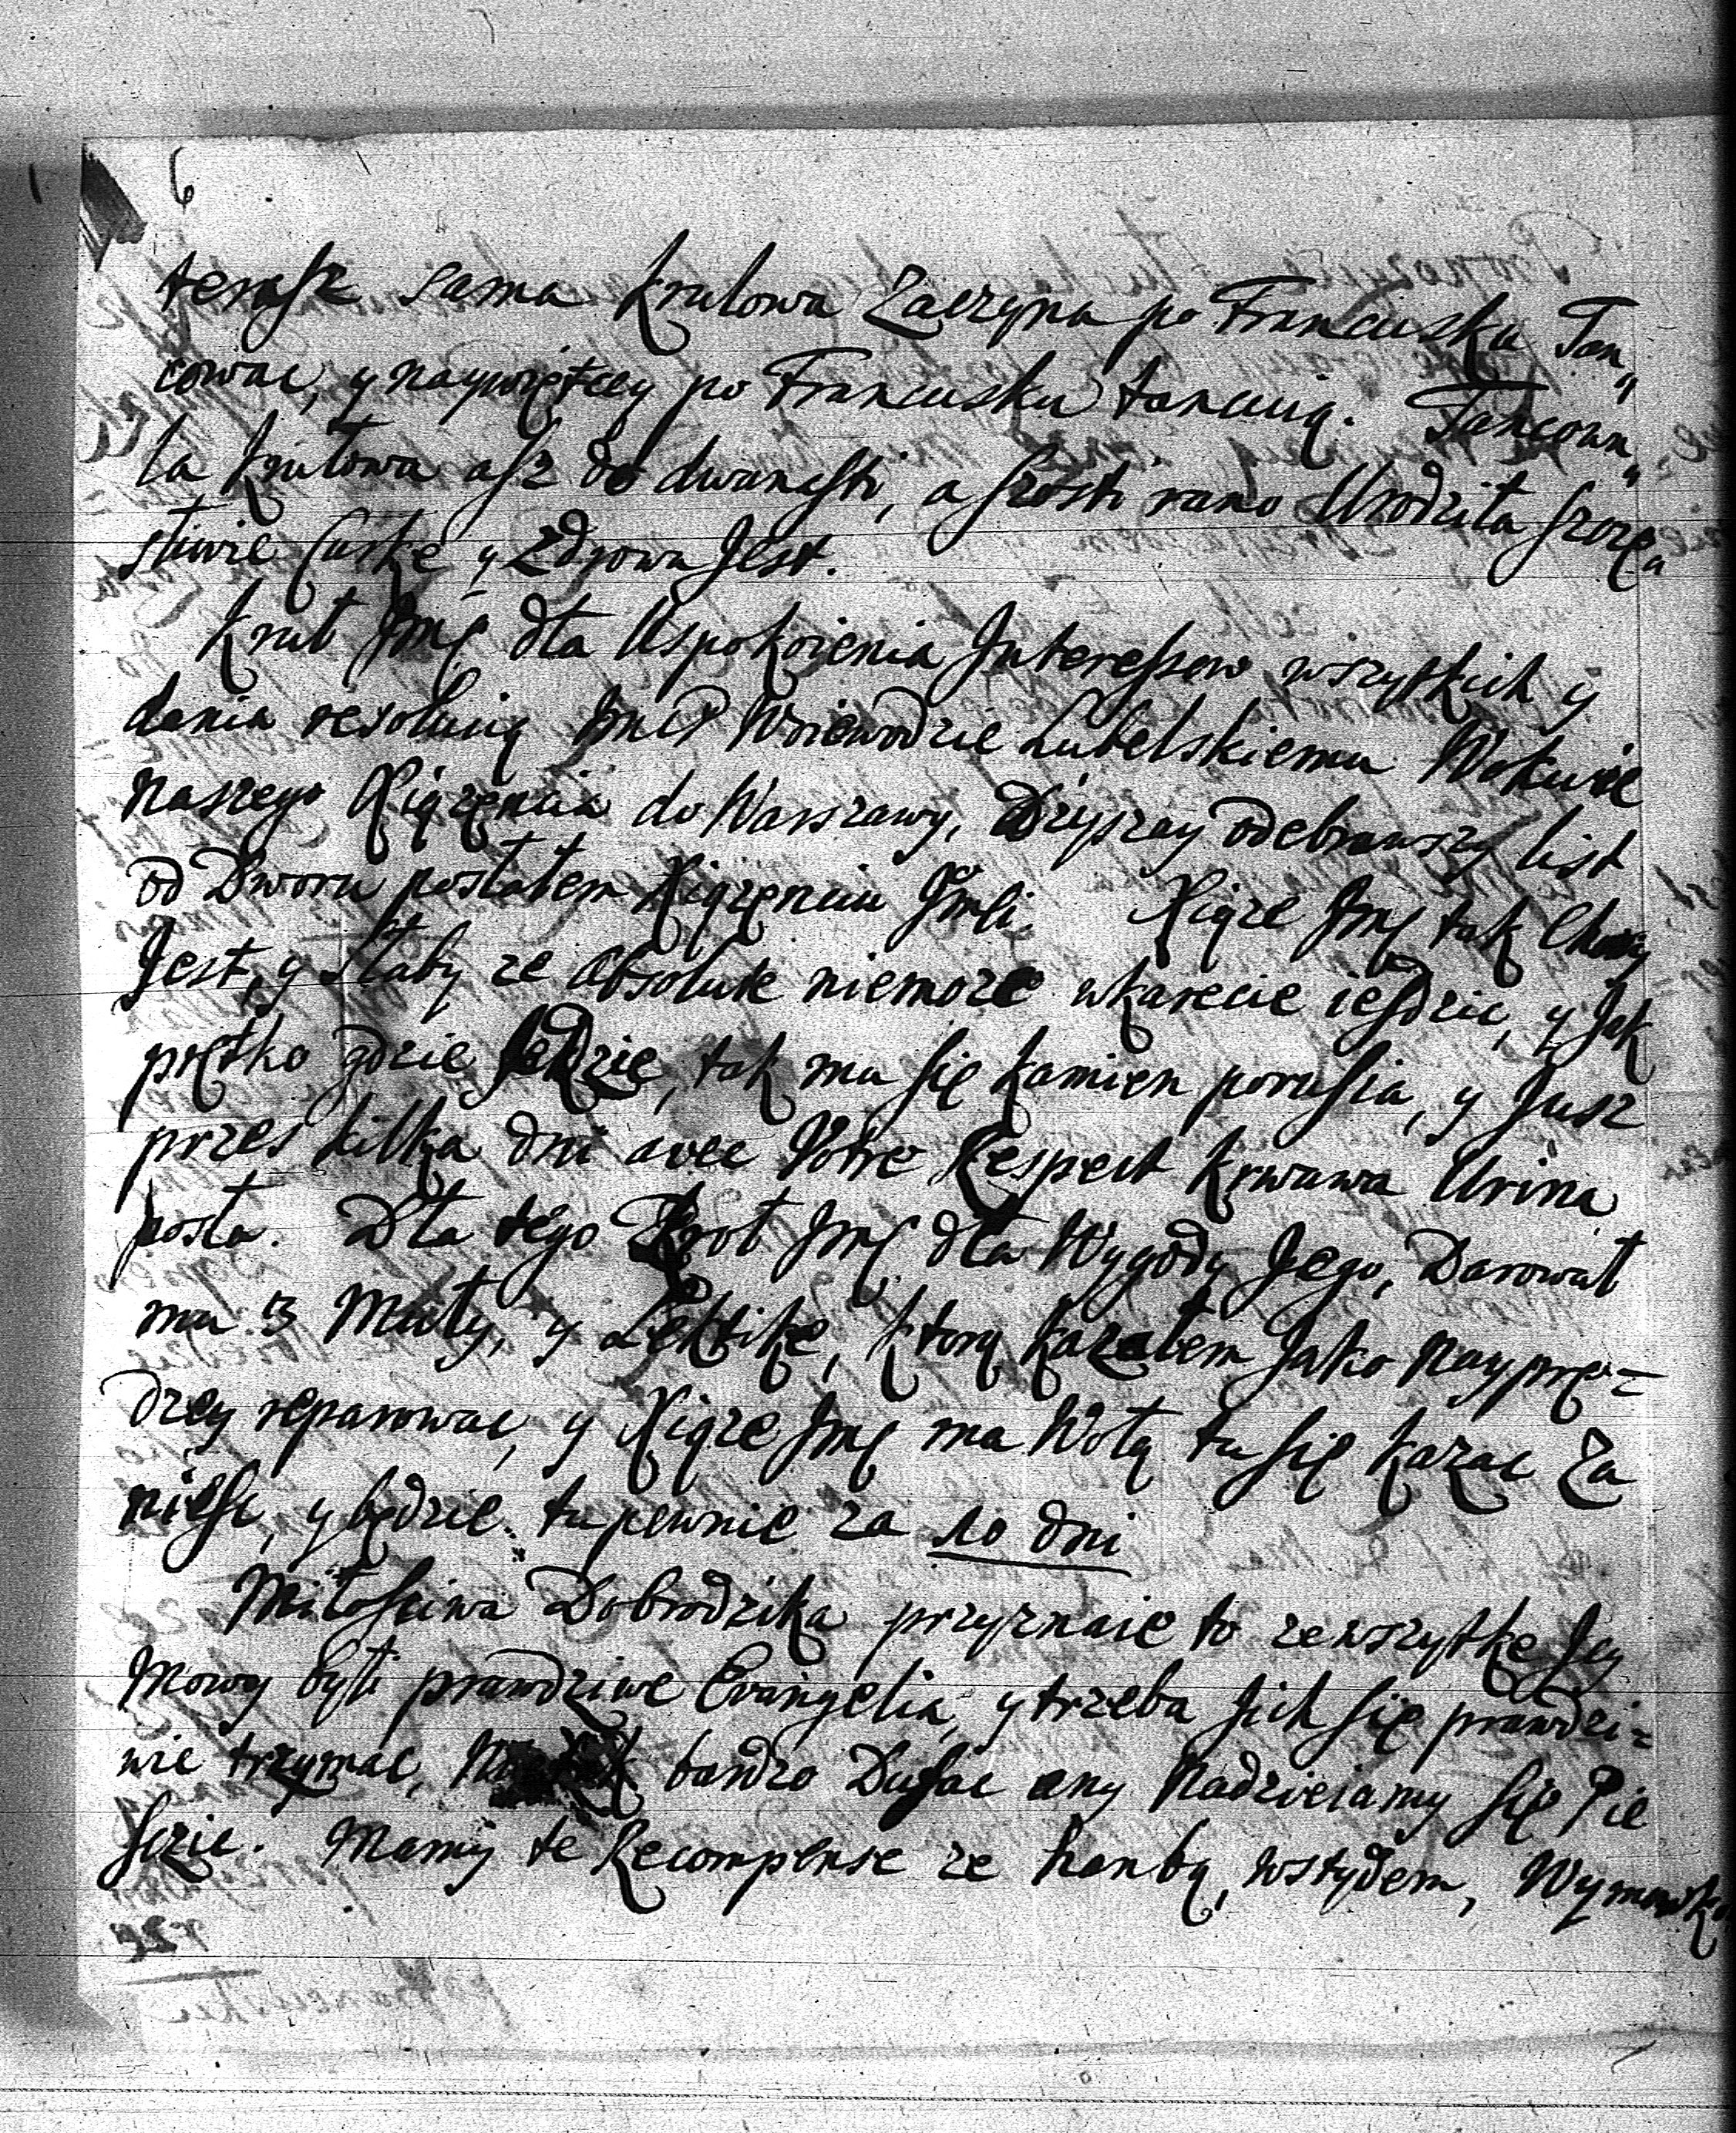 6
terasz sama Krulowa Zaczyna po Francusku Tan„
cowac, y naywiętcey po Francusku tancuią. Tancowa„
la Krulowa asz do dwanasti, a szosti rano Urodziła szczę„
sliwie Curke y zdrowa Jest.
Krul Jmć dla Uspokoienia Interessow wszytkich y
dania resolucią Jmci Woiewodzie Lubelskiemu Wokuie
naszego Xiązęncia do Warszawy, Dziyszay odebrawszy list
od Dworu posłałem Xiązęnciu Jmci. Xiąze Jmć tak Chory
Jest, y Słaby ze absolute niemoze wkarecie iesdzic, y Jak
prętko gdzie Jedzie, tak mu się kamien porusza, y Jusz
przes kilka dni avec Votre Respect krwawa Urina
posła. Dla tego Krol Jmć dla Wygody Jego, Darowal
mu 3 Muły, y Lektike, ktorą kazalem Jako nayprę=
dzey reparowac, y Xiąze Jmć ma Wolą tu się kazac Za
niesc, y będzie tu pewnie za 10 dni
Miłosciwa Dobrodzika przyznaie to ze wszytke Jey
Mowy byli prawdziwe Evangelia, y trzeba Jich się prawdzi=
wie trzymac, bardzo Dufac any nadzieiamy się Pie
sczic. Mamy te Recompense ze hanbą, wstydem, Wymowk